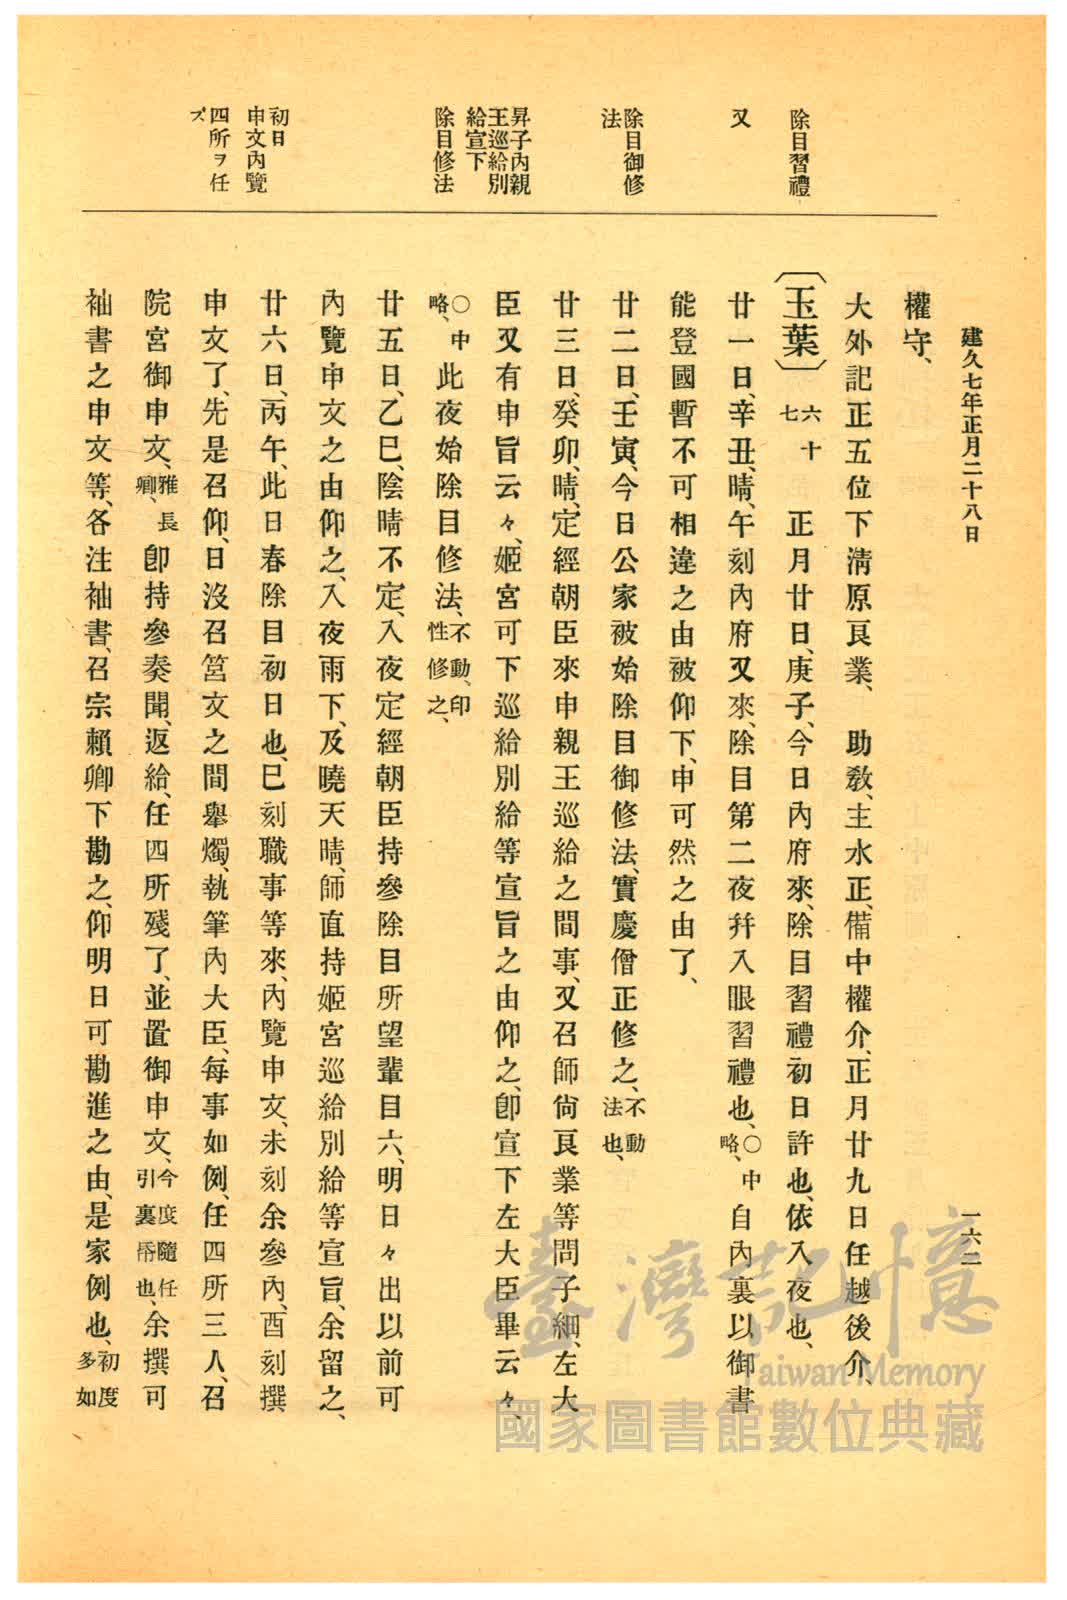 建久七年正月二十八日
一六二
除目習禮
又
除目御修
法
昇子內親
王巡給別
給宣下
除目修法
初日
申文內覽
四所ヲ任
ズ
權守、
大外記正五位下淸原良業、助敎、主水正、備中權介、正月廿九日任越後介、
〔玉葉〕六十七 正月廿日、庚子、今日內府來、除目習禮初日許也、依入夜也、
廿一日、辛丑、晴、午刻內府又來、除目第二夜幷入眼習禮也、〇中略、自內裏以御書
能登國暫不可相違之由被仰下、申可然之由了、
廿二日、壬寅、今日公家被始除目御修法、實慶僧正修之、不動法也、
廿三日、癸卯、晴、定經朝臣來申親王巡給之間事、又召師尙良業等問子細、左大
臣又有申旨云々、姬宮可下巡給別給等宣旨之由仰之、卽宣下左大臣畢云々、
〇中略、此夜始除目修法、不動、印性修之、
廿五日、乙巳、陰晴不定、入夜定經朝臣持參除目所望輩目六、明日々出以前可
內覽申文之由仰之、入夜雨下、及曉天晴、師直持姬宮巡給別給等宣旨、余留之、
廿六日、丙午、此日春除目初日也、巳刻職事等來、內覽申文、未刻余參內、酉刻撰
申文了、先是召仰、日沒召筥文之間擧燭、執筆內大臣、每事如例、任四所三人、召
院宮御申文、雅長卿、卽持參奏聞、返給、任四所殘了、並置御申文、今度隨任引裏帋也、余撰可
袖書之申文等、各注袖書、召宗賴卿下勘之、仰明日可勘進之由、是家例也、初度多如
臺灣記憶
Taiwan Memory
國家圖書館數位典藏